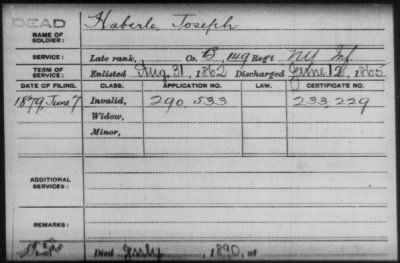 DEAD
NAME OF SOLDIER: Haberle Joseph
SERVICE: Late rank, Co. B, 149 Reg't NY Inf.
TERM OF SERVICE: Enlisted Aug. 31, 1862 Discharged June 12, 1865
DATE OF FILING. CLASS. APPLICATION NO. LAW. CERTIFICATE NO.
1879, June 7 Invalid, 290.533 233.229
Widow,
Minor,
ADDITIONAL SERVICES:
REMARKS:
Died July, 1890, at